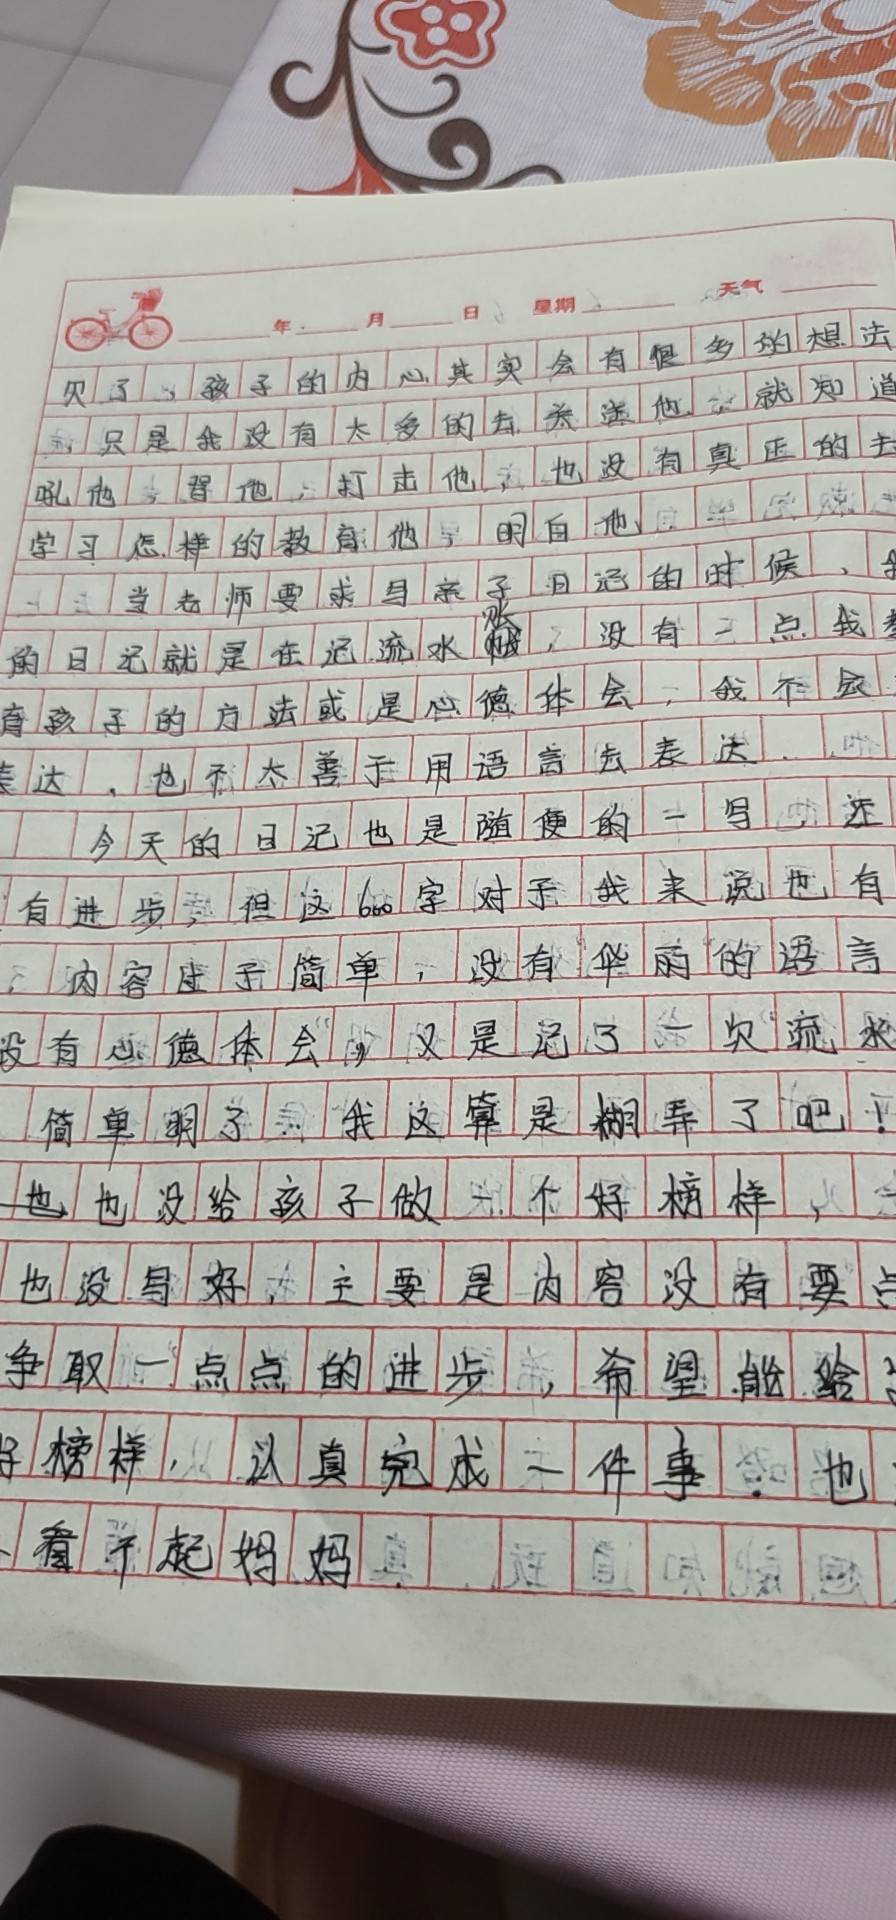 年 月 日 星期 天气
欠了，孩子的内心其实会有很多的想法
只是我没有太多的去关送他 就知道
吼他，骂他，打击他，也没有真正的去
学习怎样的教育他，明白他
当老师要求写亲子日记的时候，
的日记就是在记流水账，没有一点我
育孩子的方法或是心德体会，我不会
表达，也不太善于用语言去表达.
今天的日记也是随便的一写 还
有进步，但这600字对于我来说也有
内容过于简单，没有"华丽"的语言
没有心德体会"，又是记了一欠"流水
简单明了 我这算是糊弄了吧！
也没给孩子做 个好榜样，
也没写好，主要是内容没有要点
争取一点点的进步，希望能给
好榜样，认真完成一件事.也
看不起妈妈